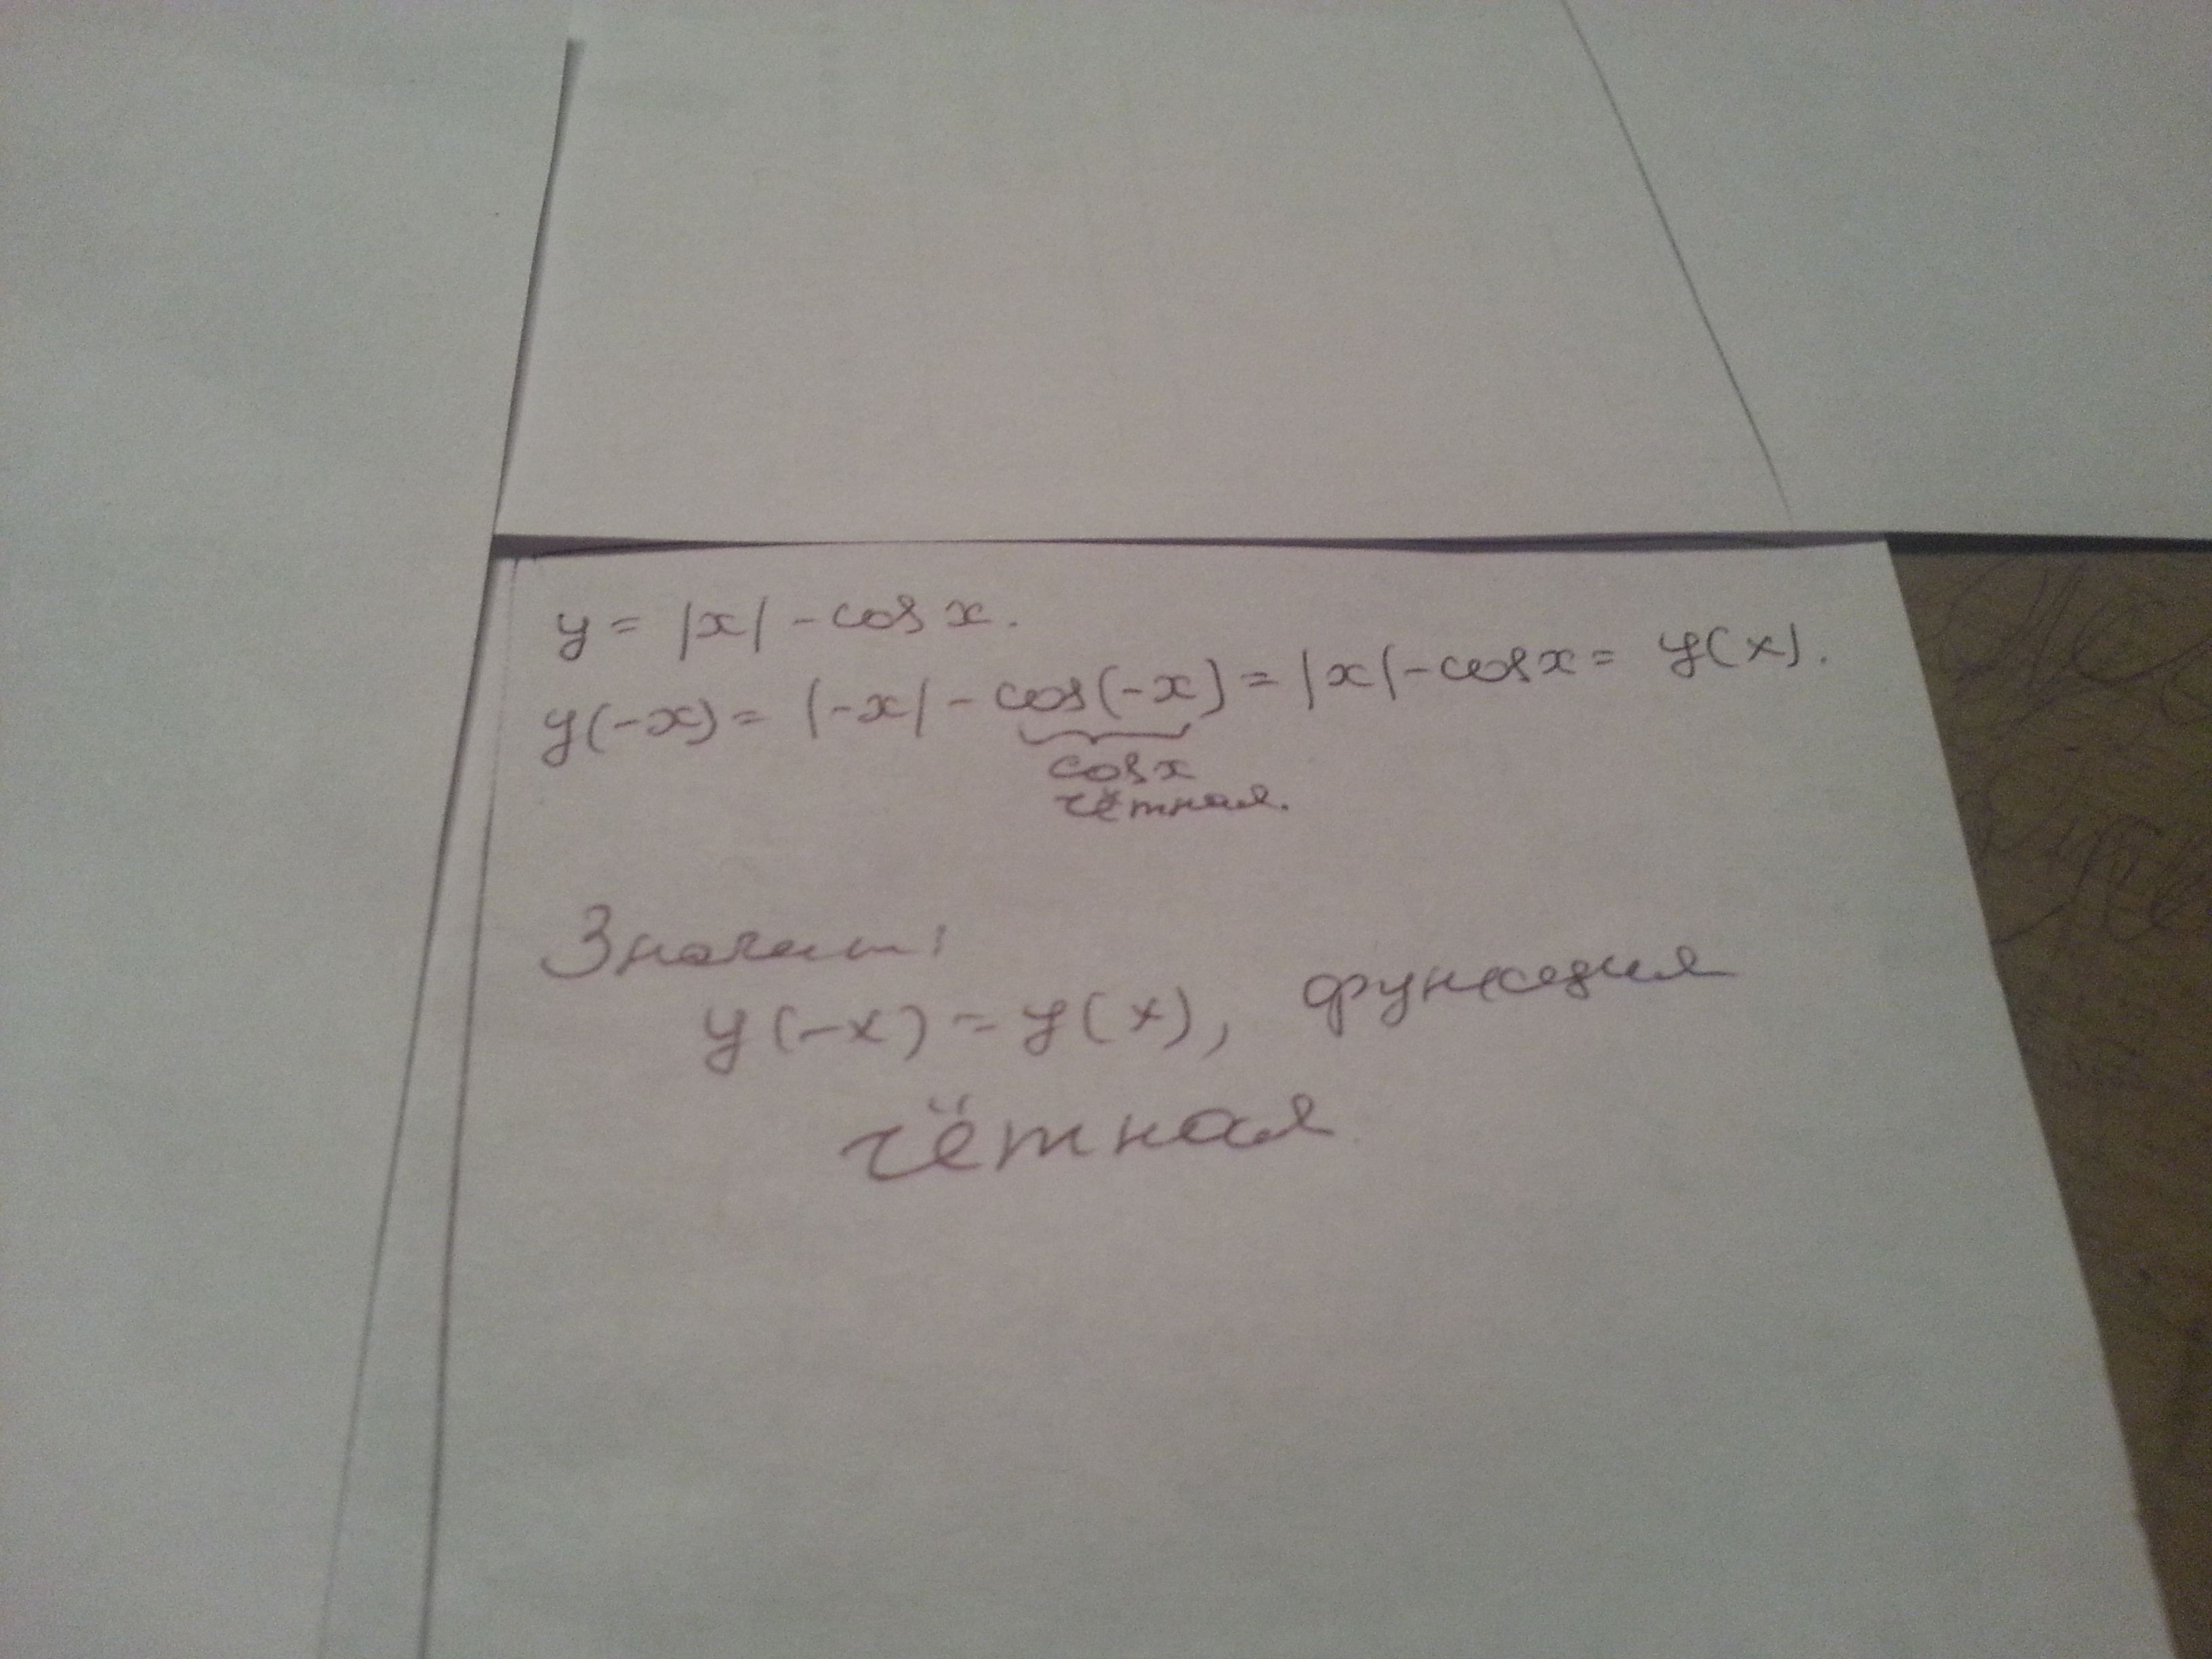 y = |x| - cos x.
y(-x) = |-x| - cos(-x) = |x| - cos x = y(x).
cos x
чётная.
Значит:
y(-x) = y(x), функция
чётная